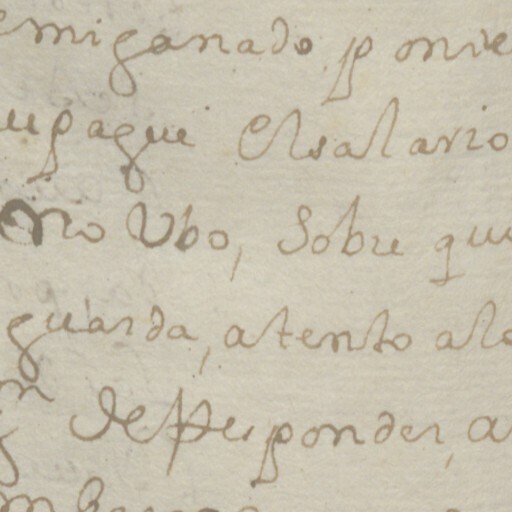 miganado. p onie
upague el salario
no Ubo, Sobre qu
guarda, atento alo
de Responder, a